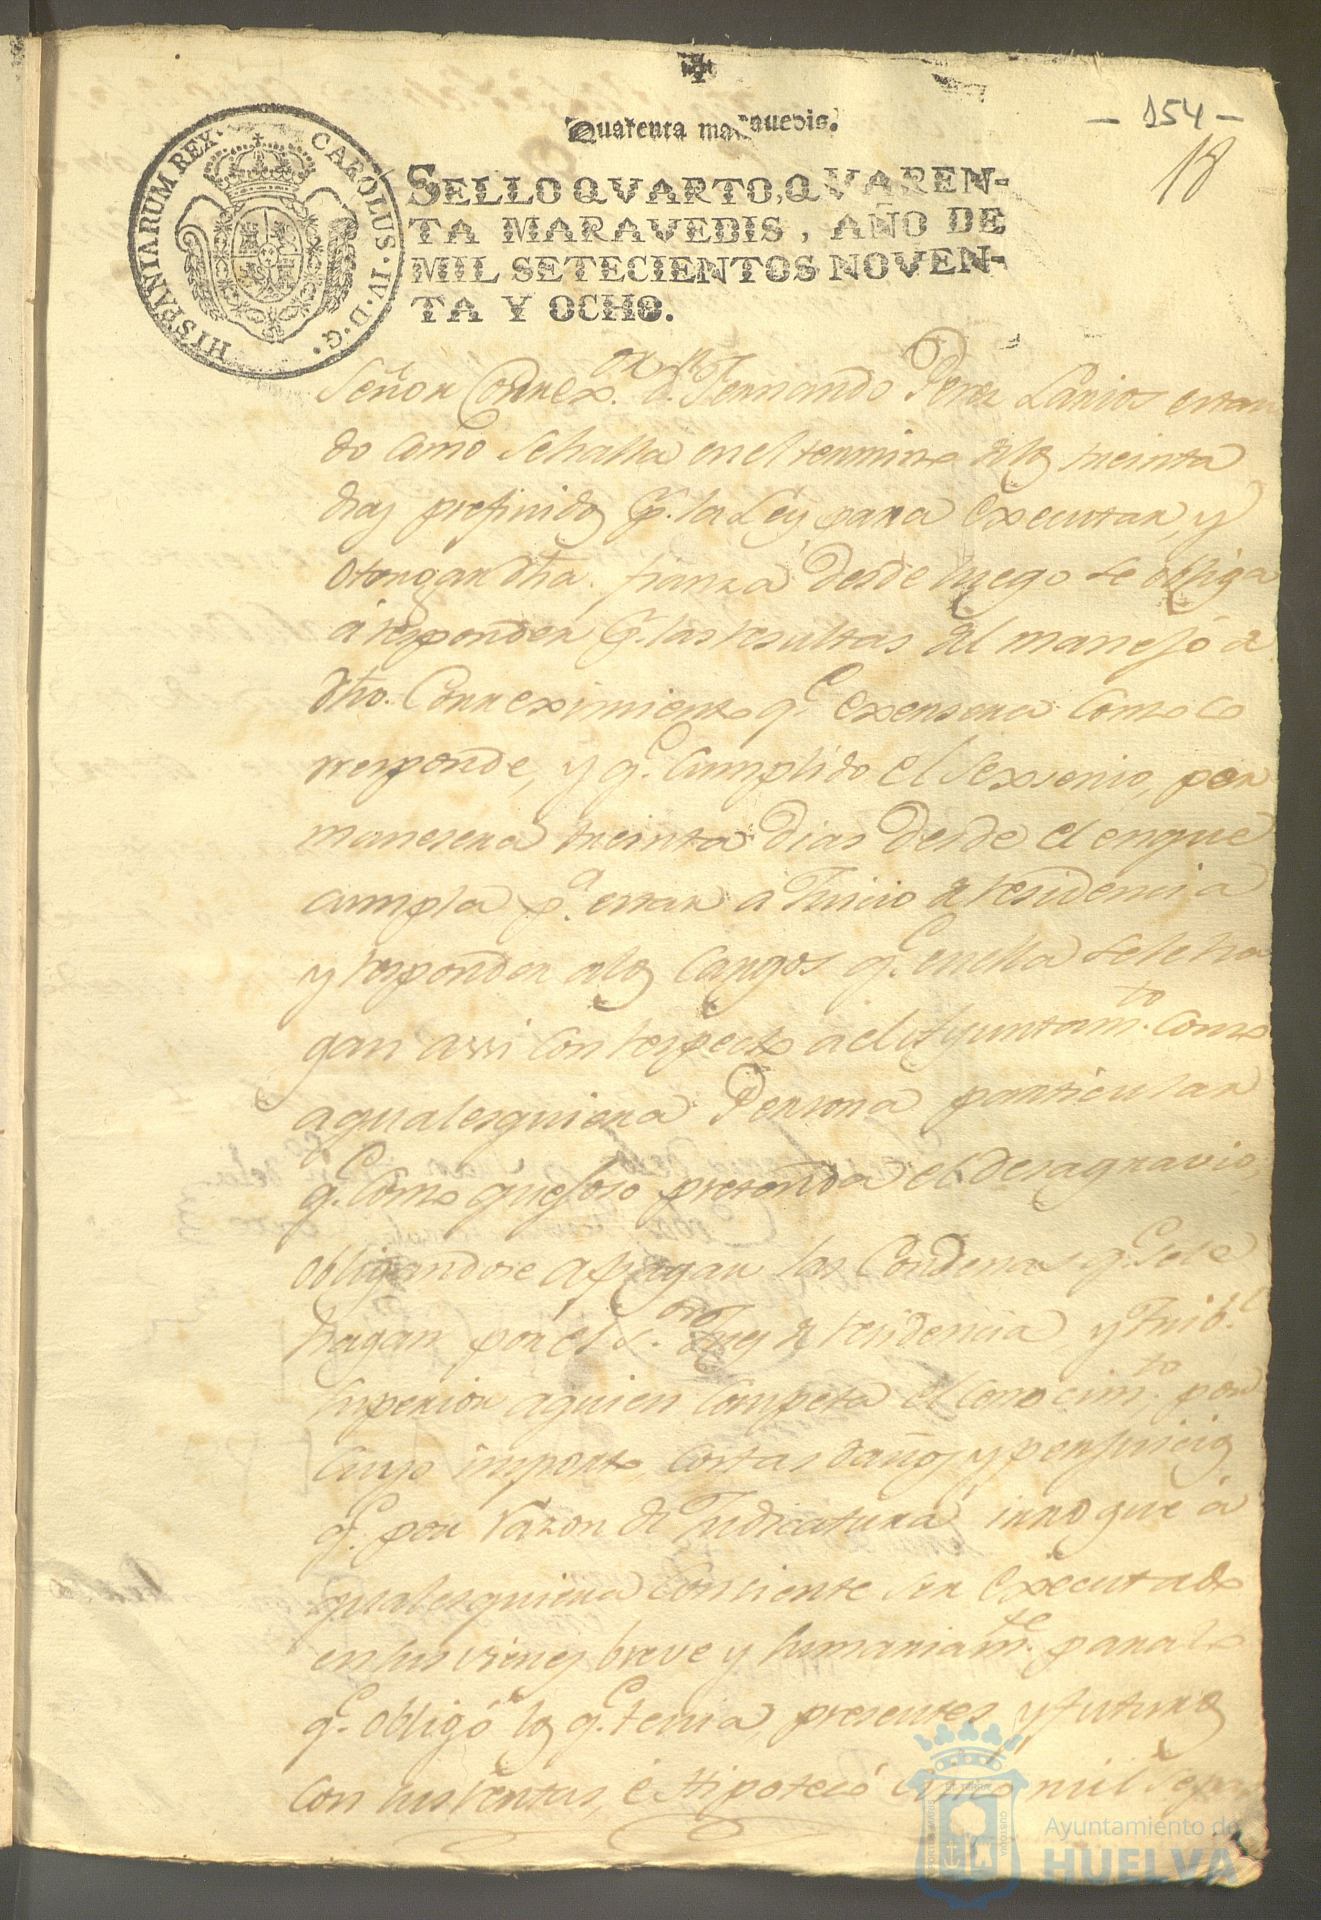 Quarenta maravedis.
- 154 -
18
HISPANIARUM REX. CAROLUS. IV. D. G.
SELLO QVARTO, QVAREN-
TA MARAVEDIS, AÑO DE
MIL SETECIENTOS NOVEN-
TA Y OCHO.
Señor Correx.or Dn. Fernando Perez Larios estan
do como se halla en el termino de los treinta
dias prefinidos pr. la Ley para executar, y
otorgar dha. fianza desde luego se obliga
á responder pr. las resultas del manejo de
dho. Correximiento qe. exersera como co
rresponde, y qe. cumplido el sexsenio, per
manesera treinta dias desde el en que
cumpla pa. estar a Juicio de residencia
y responder a los cargos qe. en ella se le ha
gan assi con respecto a el Ayuntamto. como
a qualesquiera Persona particular
qe. como quejoso pretenda el desagravio,
obligandose a pagar las Condenas qe. se le
hagan por el Sor. Juez de residencia, y Tribl.
superior a quien competa el conocimto. por
cuyo importe, costas daños y perjuicios
qe. por razon de Judicatura irrogue á
qualesquiera consiente ser executado
en sus vienes breve y sumariamte. para lo
qe. obligó los qe. tenia, presentes, y futuros
con sus rentas, é Hipotecó cinco mil
Ayuntamiento de
HUELVA